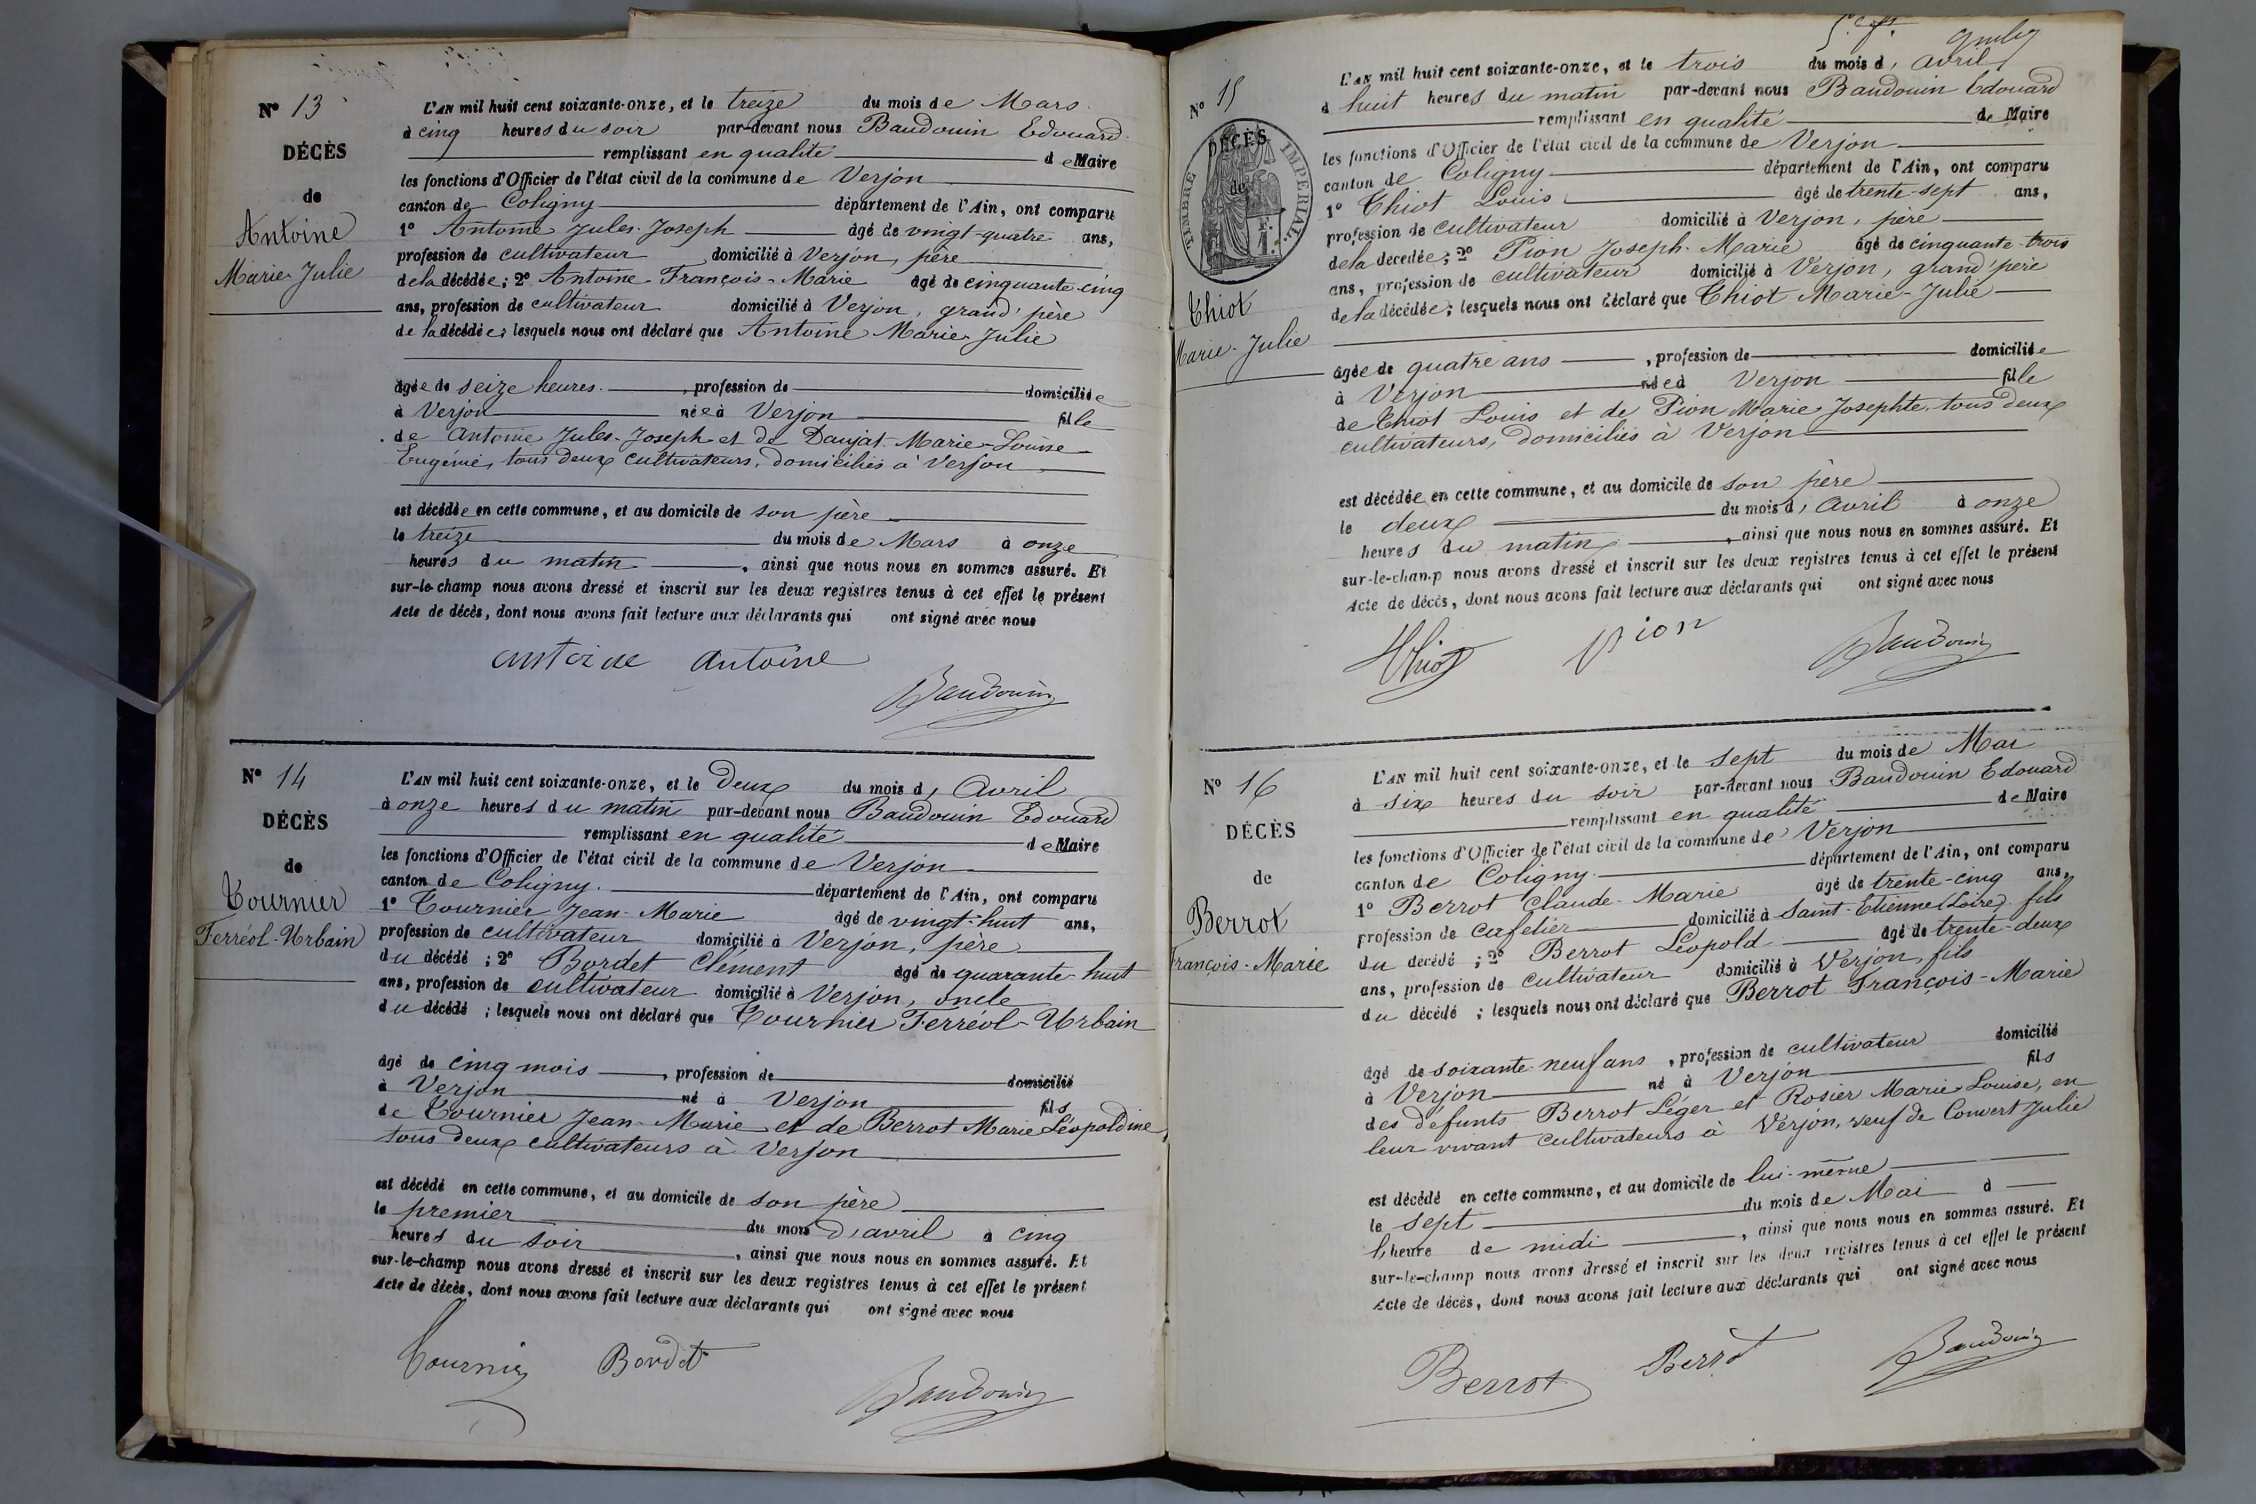 N° 13
DÉCÈS
de
Antoine
Marie-Julie
L'AN mil huit cent soixante-onze, et le treize du mois de Mars
à cinq heures du soir par-devant nous Baudouin Edouard
remplissant en qualité de Maire
les fonctions d'Officier de l'état civil de la commune de Verjon
canton de Coligny département de l'Ain, ont comparu
1° Antoine Jules-Joseph âgé de vingt-quatre ans,
profession de cultivateur domicilié à Verjon, père
de la décédée; 2° Antoine François-Marie âgé de cinquante-cinq
ans, profession de cultivateur domicilié à Verjon, grand'père
de la décédée; lesquels nous ont déclaré que Antoine Marie-Julie
âgée de seize heures, profession de domiciliée
à Verjon née à Verjon fille
de Antoine Jules-Joseph et de Daujat Marie-Louise
Eugénie, tous deux cultivateurs, domiciliés à Verjon
est décédée en cette commune, et au domicile de son père
le treize du mois de Mars à onze
heures du matin, ainsi que nous nous en sommes assuré. Et
sur-le-champ nous avons dressé et inscrit sur les deux registres tenus à cet effet le présent
Acte de décès, dont nous avons fait lecture aux déclarants qui ont signé avec nous
antoine Antoine
Baudouin
N° 14
DÉCÈS
de
Tournier
Ferréol-Urbain
L'AN mil huit cent soixante-onze, et le Deux du mois d'Avril
à onze heures du matin par-devant nous Baudouin Edouard
remplissant en qualité de Maire
les fonctions d'Officier de l'état civil de la commune de Verjon
canton de Coligny département de l'Ain, ont comparu
1° Tournier Jean-Marie âgé de vingt-huit ans,
profession de cultivateur domicilié à Verjon, père
du décédé; 2° Bordet Clément âgé de quarante-huit
ans, profession de cultivateur domicilié à Verjon, oncle
du décédé; lesquels nous ont déclaré que Tournier Ferréol-Urbain
âgé de cinq mois, profession de domicilié
à Verjon né à Verjon fils
de Tournier Jean-Marie et de Berrot Marie Léopoldine,
tous deux cultivateurs à Verjon
est décédé en cette commune, et au domicile de son père
le premier du mois d'avril à cinq
heures du soir, ainsi que nous nous en sommes assuré. Et
sur-le-champ nous avons dressé et inscrit sur les deux registres tenus à cet effet le présent
Acte de décès, dont nous avons fait lecture aux déclarants qui ont signé avec nous
Tournier Bordet
Baudouin
N° 15
DÉCÈS
de
TIMBRE IMPÉRIAL
Thiot
Marie-Julie
L'AN mil huit cent soixante-onze, et le trois du mois d'avril
à huit heures du matin par-devant nous Baudouin Edouard
remplissant en qualité de Maire
les fonctions d'Officier de l'état civil de la commune de Verjon
canton de Coligny département de l'Ain, ont comparu
1° Thiot Louis âgé de trente-sept ans,
profession de cultivateur domicilié à Verjon, père
de la décédée; 2° Pion Joseph-Marie âgé de cinquante-trois
ans, profession de cultivateur domicilié à Verjon, grand'père
de la décédée; lesquels nous ont déclaré que Thiot Marie-Julie
âgée de quatre ans, profession de domiciliée
à Verjon née à Verjon fille
de Thiot Louis et de Pion Marie-Josephte, tous deux
cultivateurs, domiciliés à Verjon
est décédée en cette commune, et au domicile de son père
le deux du mois d'avril à onze
heures du matin, ainsi que nous nous en sommes assuré. Et
sur-le-champ nous avons dressé et inscrit sur les deux registres tenus à cet effet le présent
Acte de décès, dont nous avons fait lecture aux déclarants qui ont signé avec nous
Thiot pion Baudouin
N° 16
DÉCÈS
de
Berrot
François-Marie
L'AN mil huit cent soixante-onze, et le sept du mois de Mai
à six heures du soir par-devant nous Baudouin Edouard
remplissant en qualité de Maire
les fonctions d'Officier de l'état civil de la commune de Verjon
canton de Coligny département de l'Ain, ont comparu
1° Berrot Claude-Marie âgé de trente-cinq ans,
profession de cafetier domicilié à Saint-Etienne (Loire) fils
du décédé; 2° Berrot Léopold âgé de trente-deux
ans, profession de cultivateur domicilié à Verjon, fils
du décédé; lesquels nous ont déclaré que Berrot François-Marie
âgé de soixante-neuf ans, profession de cultivateur domicilié
à Verjon né à Verjon fils
des défunts Berrot Léger et Rosier Marie-Louise, en
leur vivant cultivateurs à Verjon, veuf de Convert Julie
est décédé en cette commune, et au domicile de lui-même
le sept du mois de Mai à
l'heure de midi, ainsi que nous nous en sommes assuré. Et
sur-le-champ nous avons dressé et inscrit sur les deux registres tenus à cet effet le présent
Acte de décès, dont nous avons fait lecture aux déclarants qui ont signé avec nous
Berrot Berrot Baudouin